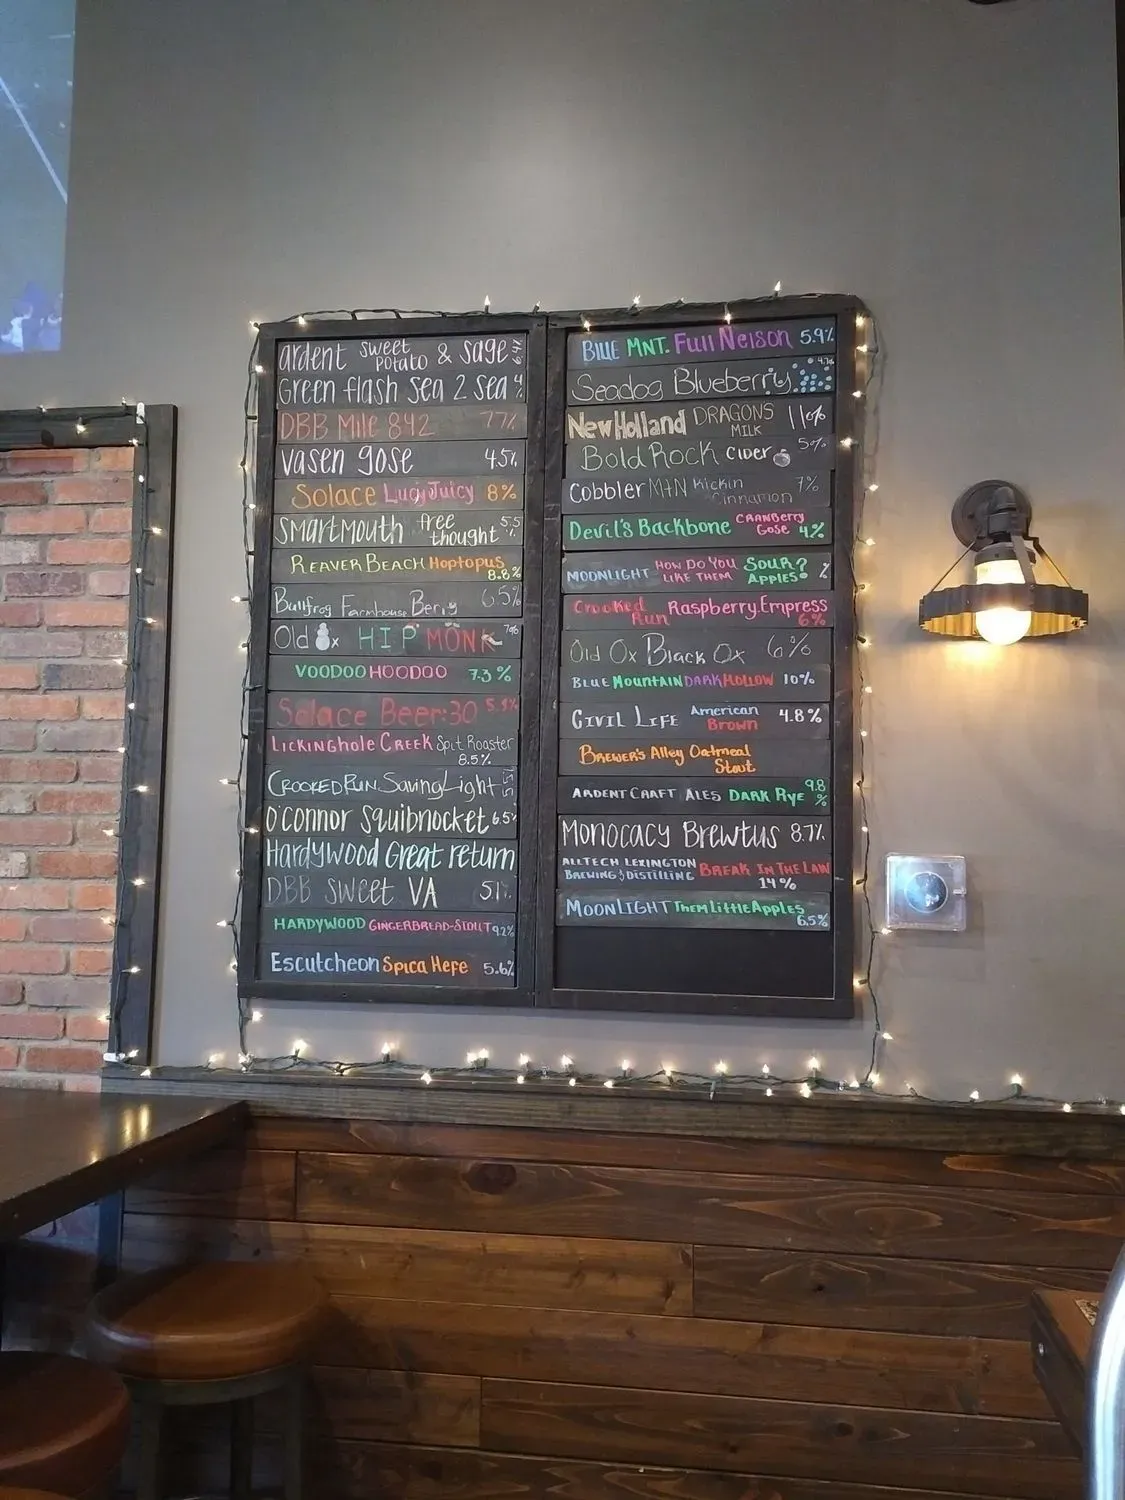 ardent sweet potato & sage 6.4%
Green flash Sea 2 Sea 4%
DBB Mile 842 7.7%
vasen gose 4.5%
Solace LucyJuicy 8%
Smartmouth free thought 5.5%
Reaver Beach Hoptopus 8.8%
Bullfrog Farmhouse Berry 6.5%
Old Ox HIP MONK 7%
VOODOO HOODOO 7.3%
Solace Beer:30 5.5%
Lickinghole Creek Spit Roaster 8.5%
Crooked Run Saving Light
O'Connor Squibnocket 6.5%
Hardywood Great return
DBB Sweet VA 5.1%
HARDYWOOD GINGERBREAD-STOUT 9.2%
Escutcheon Spica Hefe 5.6%
BLUE MNT. Full Nelson 5.9%
Seadog Blueberry 4.7%
New Holland DRAGONS MILK 11%
Bold Rock Cider 5%
Cobbler MTN Kickin Cinnamon 7%
Devil's Backbone CRANBerry Gose 4%
MOONLIGHT HOW DO YOU LIKE THEM SOUR APPLES? %
Crooked Run Raspberry Empress 6%
Old Ox Black Ox 6%
BLUE MOUNTAIN DARK HOLLOW 10%
CIVIL LIFE American Brown 4.8%
Brewer's Alley Oatmeal Stout
ARDENT CRAFT ALES DARK Rye 9.8%
Monocacy Brewtus 8.7%
ALLTECH LEXINGTON BREWING & DISTILLING BREAK IN THE LAW 14%
MOONLIGHT Them Little Apples 6.5%